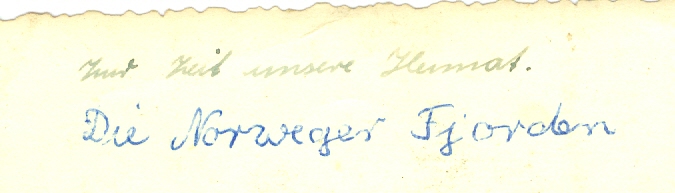 Zur Zeit unsere Heimat.
Die Norweger Fjorden